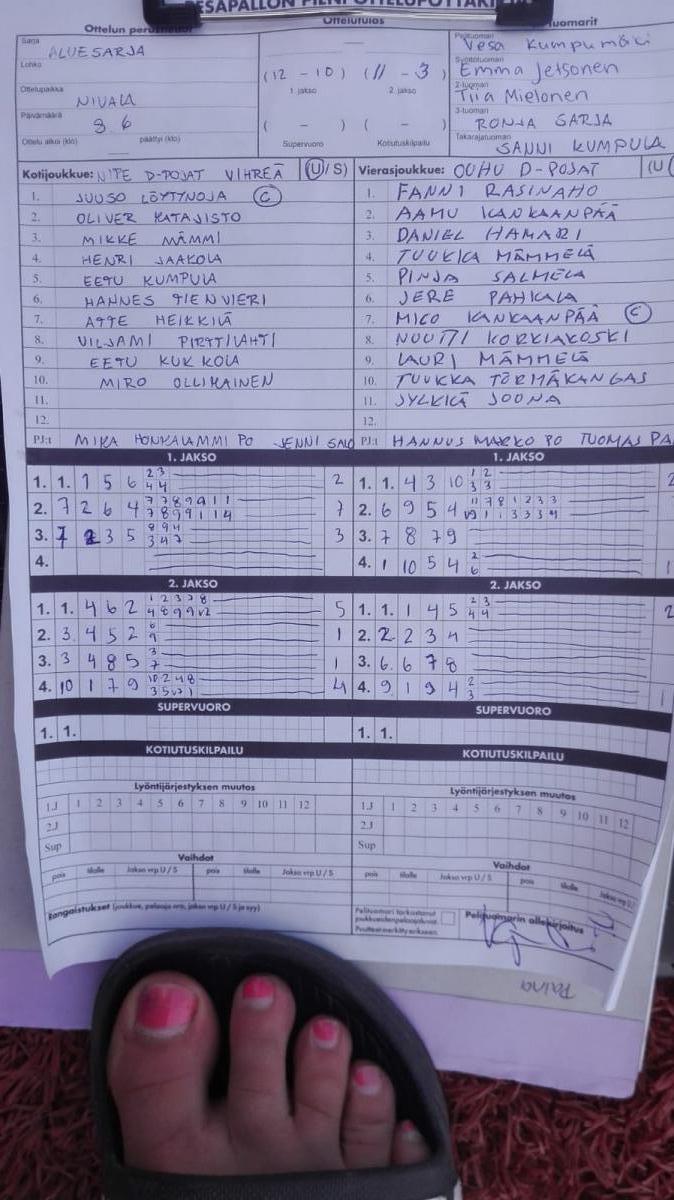 PESÄPALLON PIENI OTTELUPÖYTÄKIRJA
Ottelun perustiedot
Ottelutulos
tuomarit
Sarja
ALUESARJA
Lohko
Ottelupaikka
NIVALA
Päivämäärä
8 6
Ottelu alkoi (klo) päättyi (klo)
(12 - 10) (11 - 3)
1. jakso 2. jakso
( - ) ( - )
Supervuoro Kotiutuskilpailu
Pelituomari
Vesa Kumpumäki
Syöttötuomari
Emma Jetsonen
2-tuomari
Tiia Mielonen
3-tuomari
RONJA SARJA
Takarajatuomari
SANNI KUMPULA
Kotijoukkue: NIPE D-POJAT VIHREÄ (U/S)
1. JUUSO LÖYTTNOJA C
2. OLIVER KATAJISTO
3. MIKKE MÄMMI
4. HENRI JAAKOLA
5. EETU KUMPULA
6. HANNES TIENVIERI
7. ATTE HEIKKILÄ
8. VILJAMI PIRTTILAHTI
9. EETU KUKKOLA
10. MIRO OLLIKAINEN
11.
12.
PJ:t MIKA HONKALAMMI PO JENNI SALO
Vierasjoukkue: OUHU D-POJAT (U
1. FANNI RASINAHO
2. AAMU KANKAANPÄÄ
3. DANIEL HAMARI
4. TUUKKA MÄMMELÄ
5. PINJA SALMELA
6. JERE PAHKALA
7. MICO KANKAANPÄÄ C
8. KORKIAKOSKI
9. LAURI MÄMMELÄ
10. TUUKKA TÖRMÄKANGAS
11. JYLKKÄ JOONA
12.
PJ:t HANNUS MARKO PO TUOMAS PA
1. JAKSO
1. 1. 1 5 6 2 3 4 4 2
2. 7 2 6 4 7
3. 7 2 3 5 3
4.
1. JAKSO
1. 1. 4 3 10 1 2 3 3 2
2. 6 9 5 4
3. 7 8 7 9
4. 1 10 5 4 2 6 1
2. JAKSO
1. 1. 4 6 2 5
2. 3 4 5 2 6 9 1
3. 3 4 8 5 3 7 1
4. 10 1 7 9 4
2. JAKSO
1. 1. 1 4 5 2 3 4 4 2
2. 2 2 3 4
3. 6 6 7 8
4. 9 1 9 4 2 3 1
SUPERVUORO
1. 1.
SUPERVUORO
1. 1.
KOTIUTUSKILPAILU
KOTIUTUSKILPAILU
Lyöntijärjestyksen muutos
1.J 1 2 3 4 5 6 7 8 9 10 11 12
2.J
Sup
Lyöntijärjestyksen muutos
1.J 1 2 3 4 5 6 7 8 9 10 11 12
2.J
Sup
Vaihdot
pois tilalle Jakso vrp U / S pois tilalle Jakso vrp U / S
Vaihdot
pois tilalle Jakso vrp U / S pois tilalle Jakso vrp U /
Rangaistukset (joukkue, pelaaja nro, jakso vrp U / S ja syy)
Pelituomari tarkastanut
joukkueiden pelaajaluvat.
Puutteet merkitty erikseen.
Pelituomarin allekirjoitus
Paina